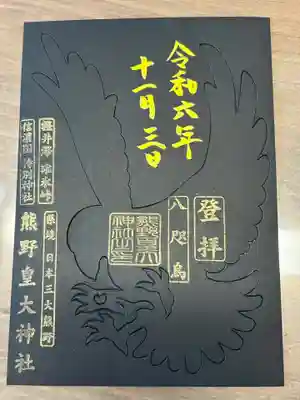 令和六年
十一月三日
登拝
八咫烏
熊野皇大神社之印
軽井澤 碓氷峠
縣境 日本三大熊野
信濃國 特別神社
熊野皇大神社